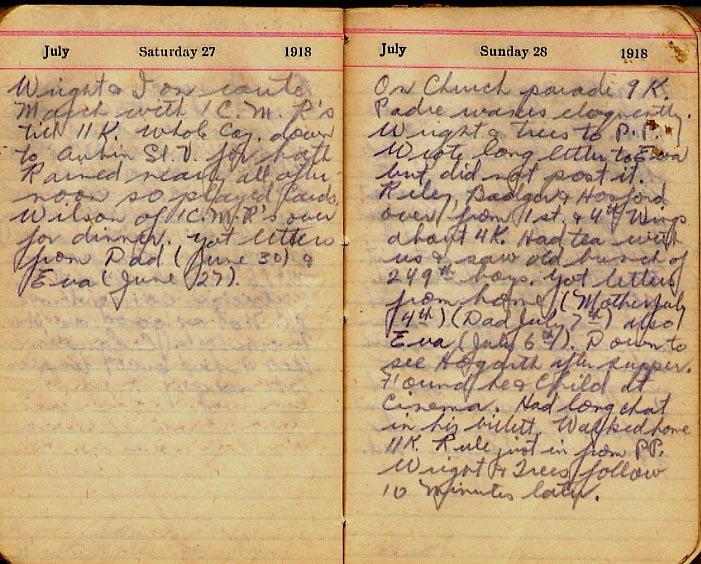 July Saturday 27 1918
Wright & I on route
March with 1 C. M. R's
till 11 K. Whole Coy. down
to Aubin St. V. for bath
Rained nearly all after-
noon so played Cards.
Wilson of 1 C.M.R's over
for dinner. Got letters
from Dad (June 30) &
Eva (June 27).
July Sunday 28 1918
On Church parade 9 K.
Padre waxes eloquently.
Wright & Trees to P.P.
Wrote long letter to Eva
but did not post it.
Riley, Badger & Hosford
over from 1st. & 4th Wings
about 4K. Had tea with
us & saw old bunch of
249th boys. Got letters
from home (Mother July
4th) (Dad July 7th) also
Eva (July 6th). Down to
see Hogarth after supper.
Found he & Child at
Cinema. Had long chat
in his billett. Walked home
11K. Rule just in from P.P.
Wright & Trees follow
10 Minutes later.